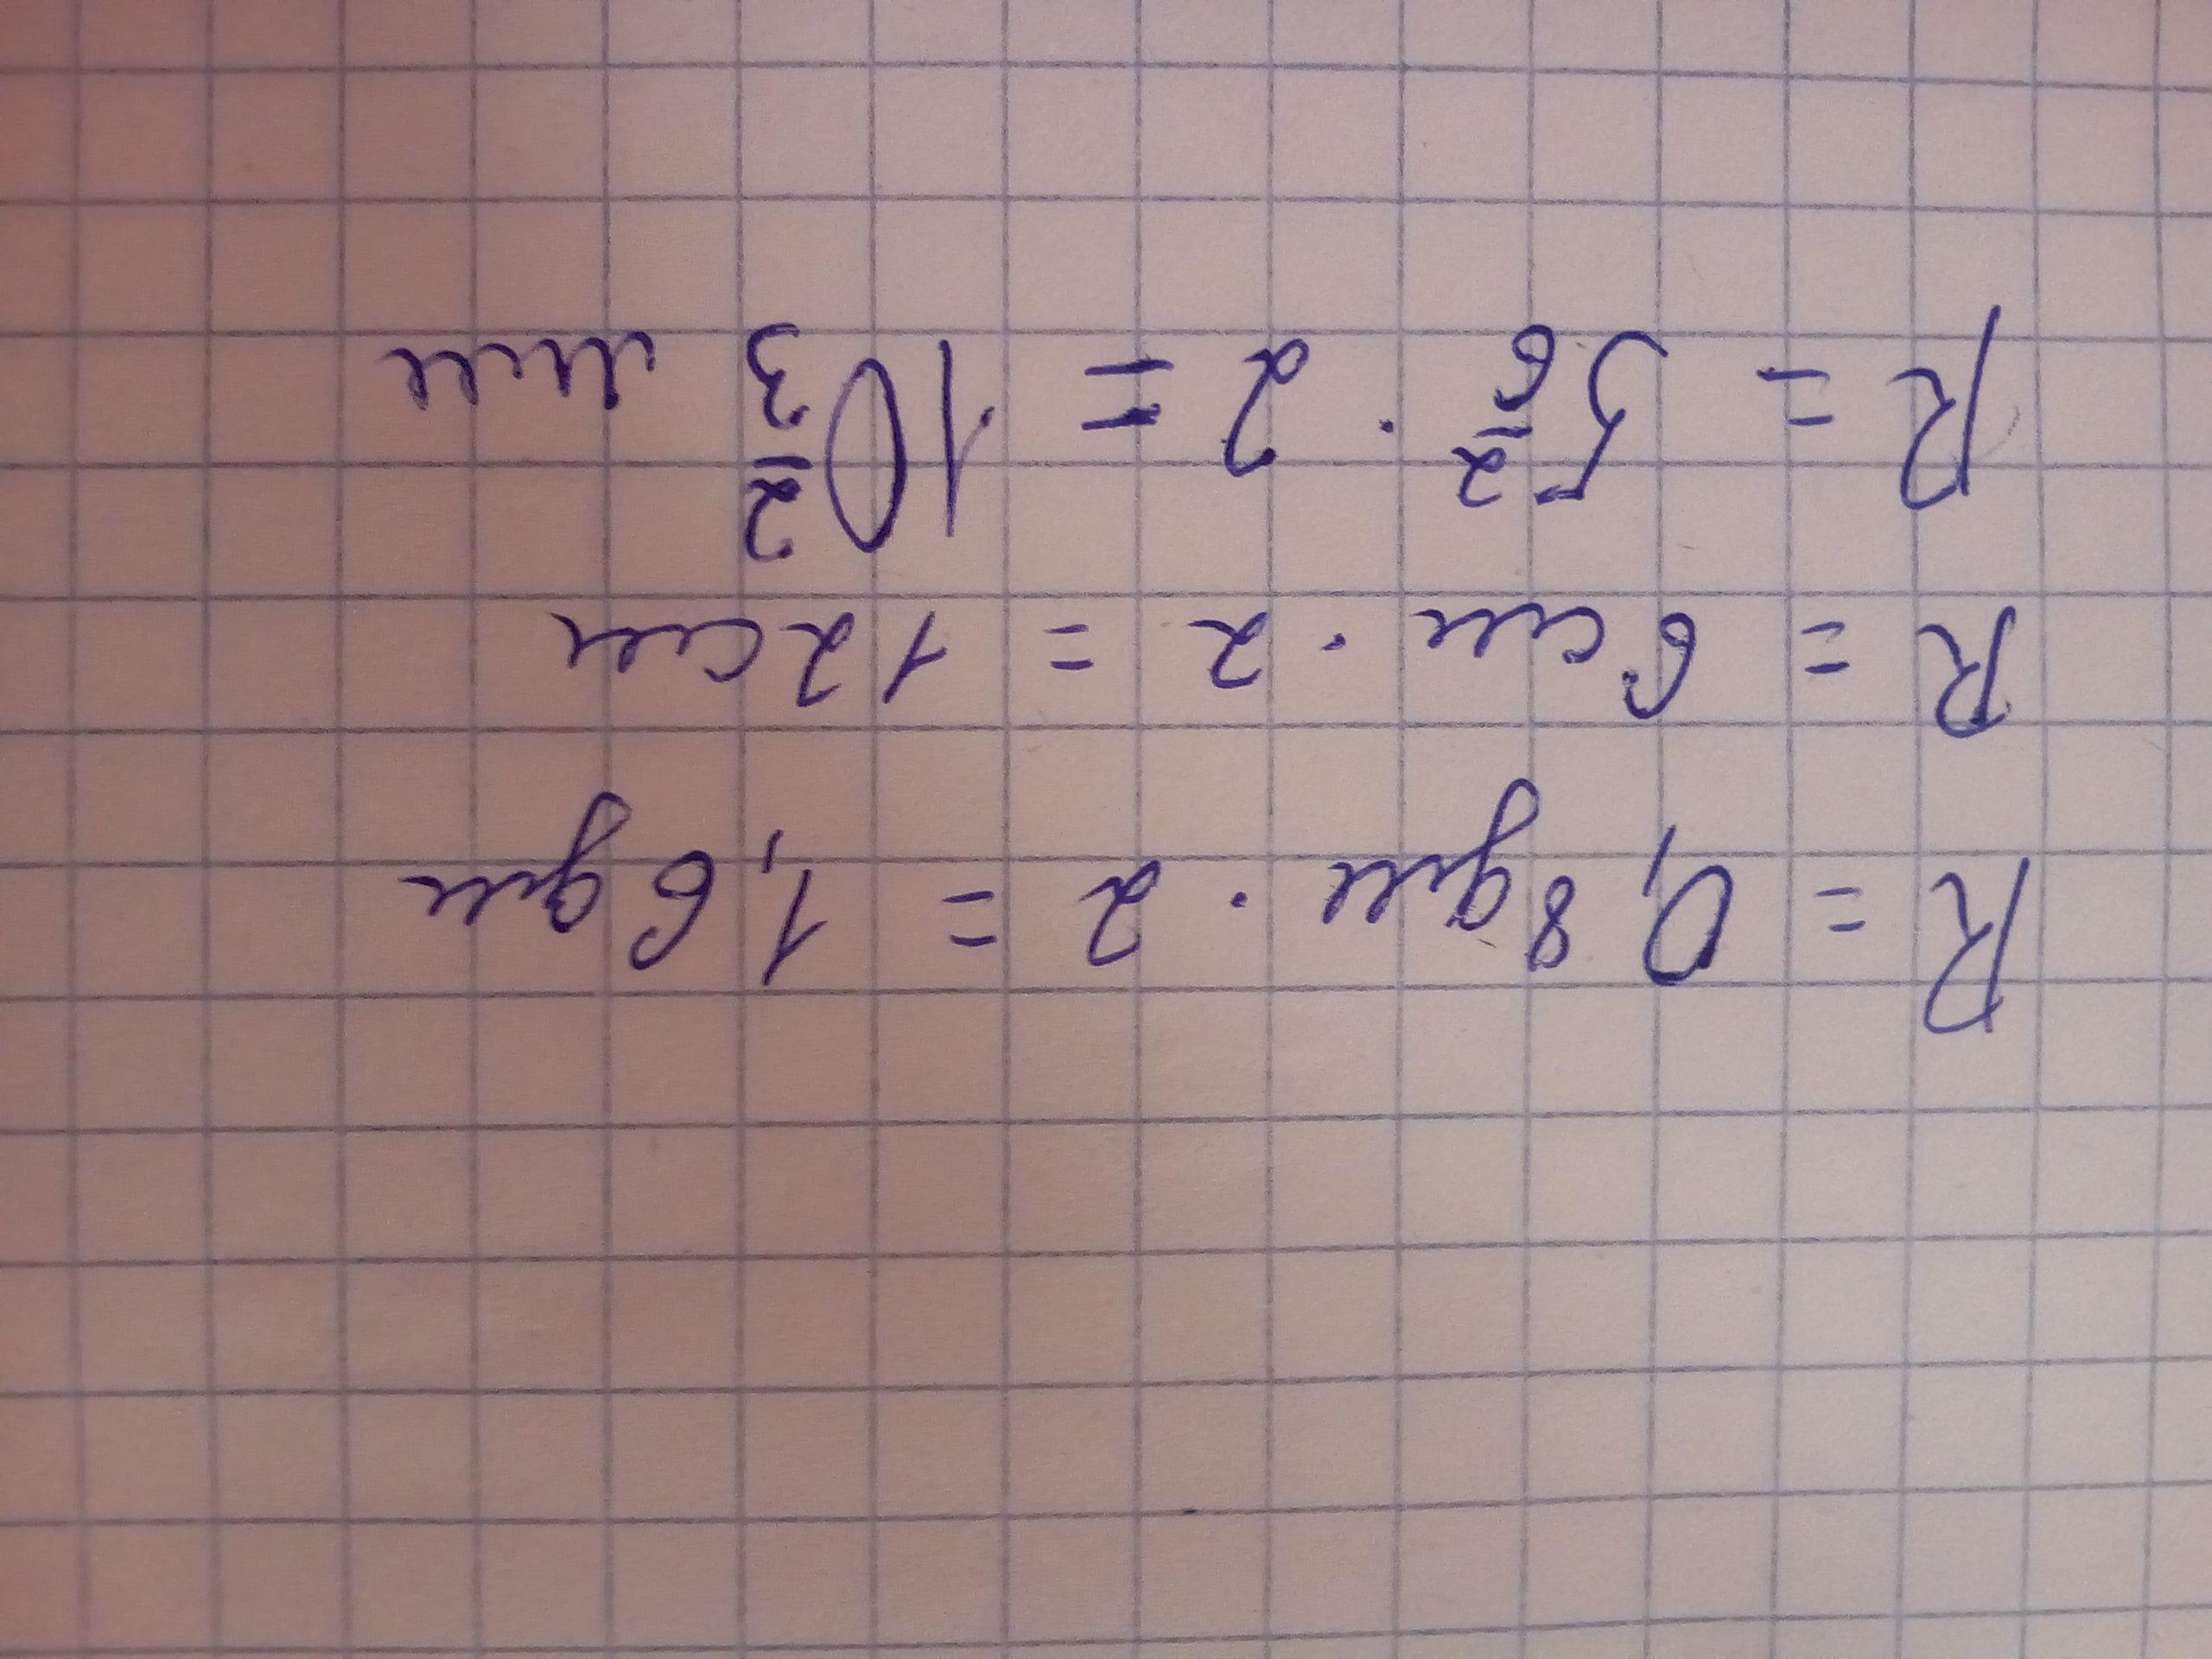 R = 0,8дм · 2 = 1,6дм
R = 6см · 2 = 12см
R = 5 2/6 · 2 = 10 2/3 мм